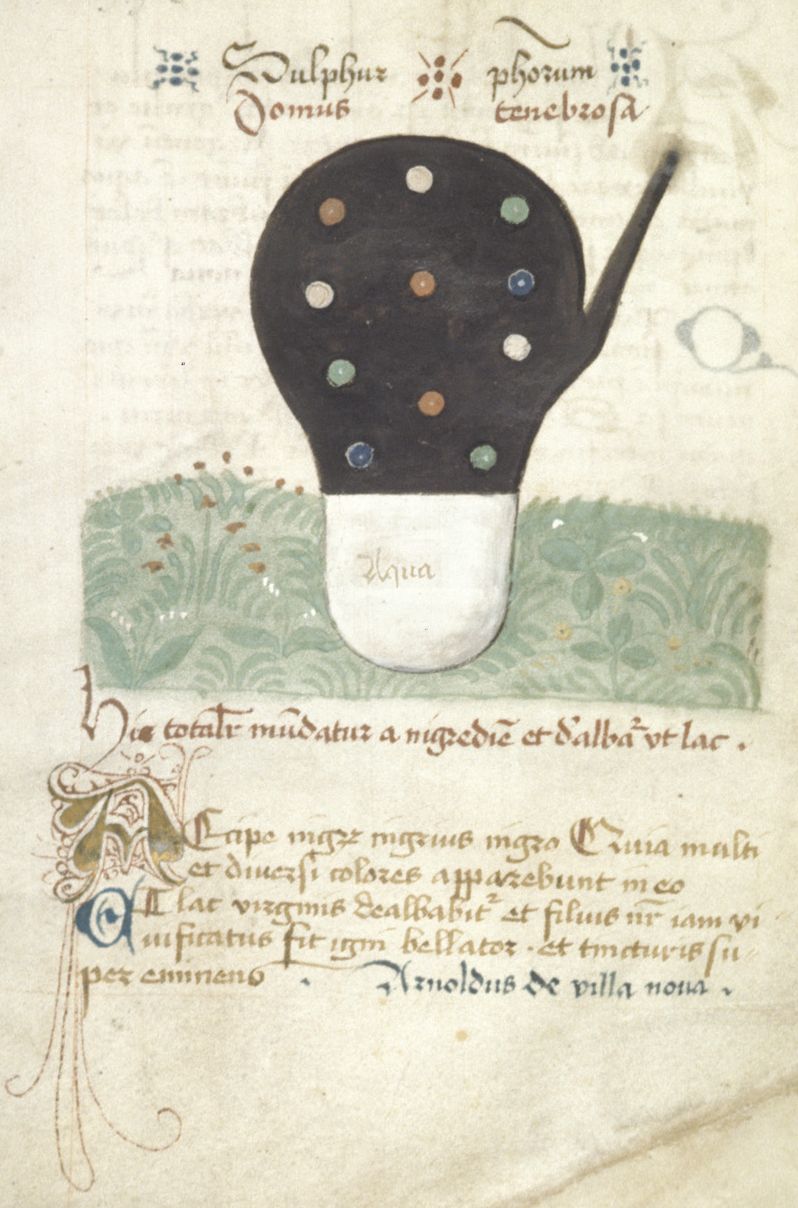 Sulphur phōrum
Domus tenebrosa
Aqua
Hic totalr mūdatur a nigredīe et d'albar ut lac .
Accipe nigrr nigrius nigro Quia multi
et diversi colores apparebunt in eo
Al lac virginis dealbabitr et filius nr iam vi
vificatus fit igni bellator . et tincturis su-
per eminens . Arnoldus de villa nova .